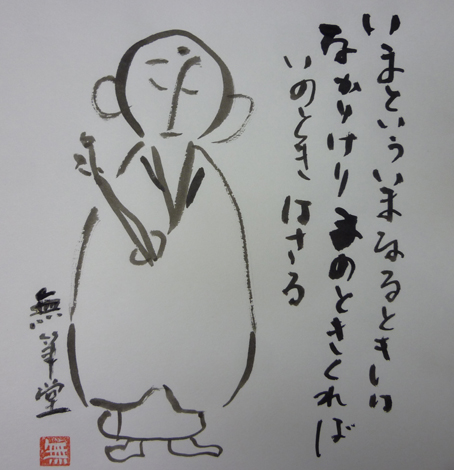 いまといういまなるときは
なかりけりまのときくれば
いのときはさる
無筆堂